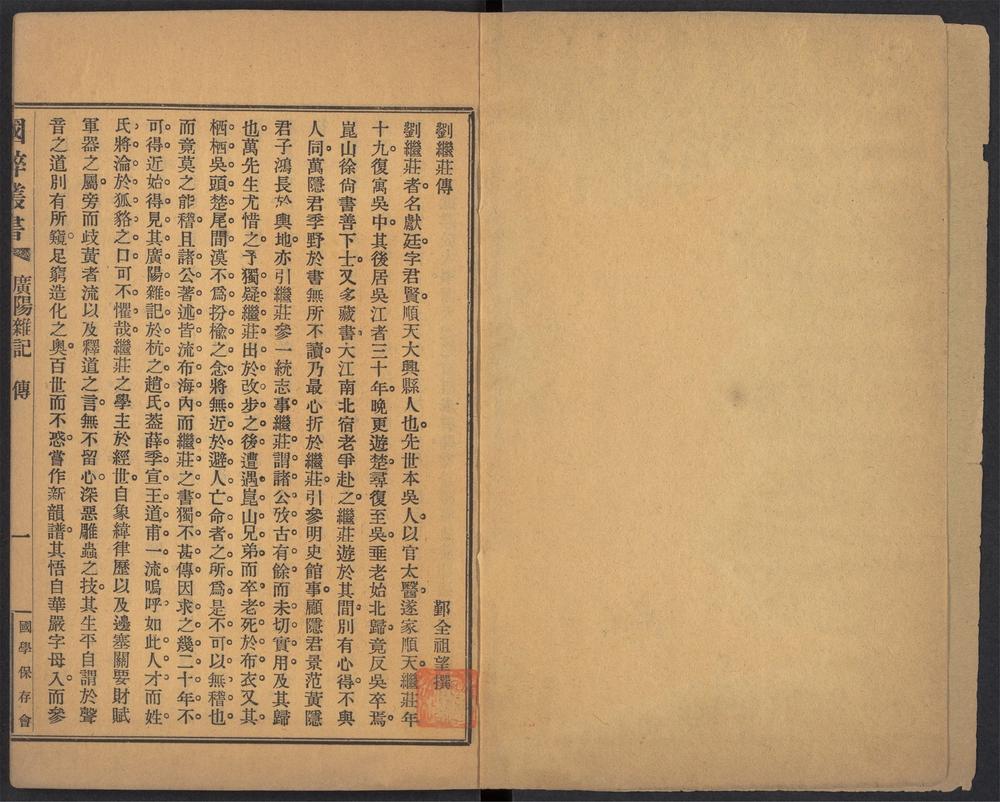 劉繼莊傳
鄞全祖望撰
劉繼莊者名獻廷字君賢順天大興縣人也先世本吳人以官太醫遂家順天繼莊年
十九復寓吳中其後居吳江者三十年晚更遊楚尋復至吳垂老始北歸竟反吳卒焉
崑山徐尙書善下士又多藏書大江南北宿老爭赴之繼莊遊於其間別有心得不與
人同萬隱君季野於書無所不讀乃最心折於繼莊引參明史館事顧隱君景范黃隱
君子鴻長於輿地亦引繼莊參一統志事繼莊謂諸公攷古有餘而未切實用及其歸
也萬先生尤惜之予獨疑繼莊出於改步之後遭遇崑山兄弟而卒老死於布衣又其
栖栖吳頭楚尾間漠不爲枌楡之念將無近於避人亡命者之所爲是不可以無稽也
而竟莫之能稽且諸公著述皆流布海內而繼莊之書獨不甚傳因求之幾二十年不
可得近始得見其廣陽雜記於杭之趙氏葢薛季宣王道甫一流嗚呼如此人才而姓
氏將淪於狐貉之口可不懼哉繼莊之學主於經世自象緯律歷以及邊塞關要財賦
軍器之屬旁而歧黃者流以及釋道之言無不留心深惡雕蟲之技其生平自謂於聲
音之道別有所窺足窮造化之奧百世而不惑嘗作新韻譜其悟自華嚴字母入而參
國粹叢書
廣陽雜記 傳
一
國學保存會